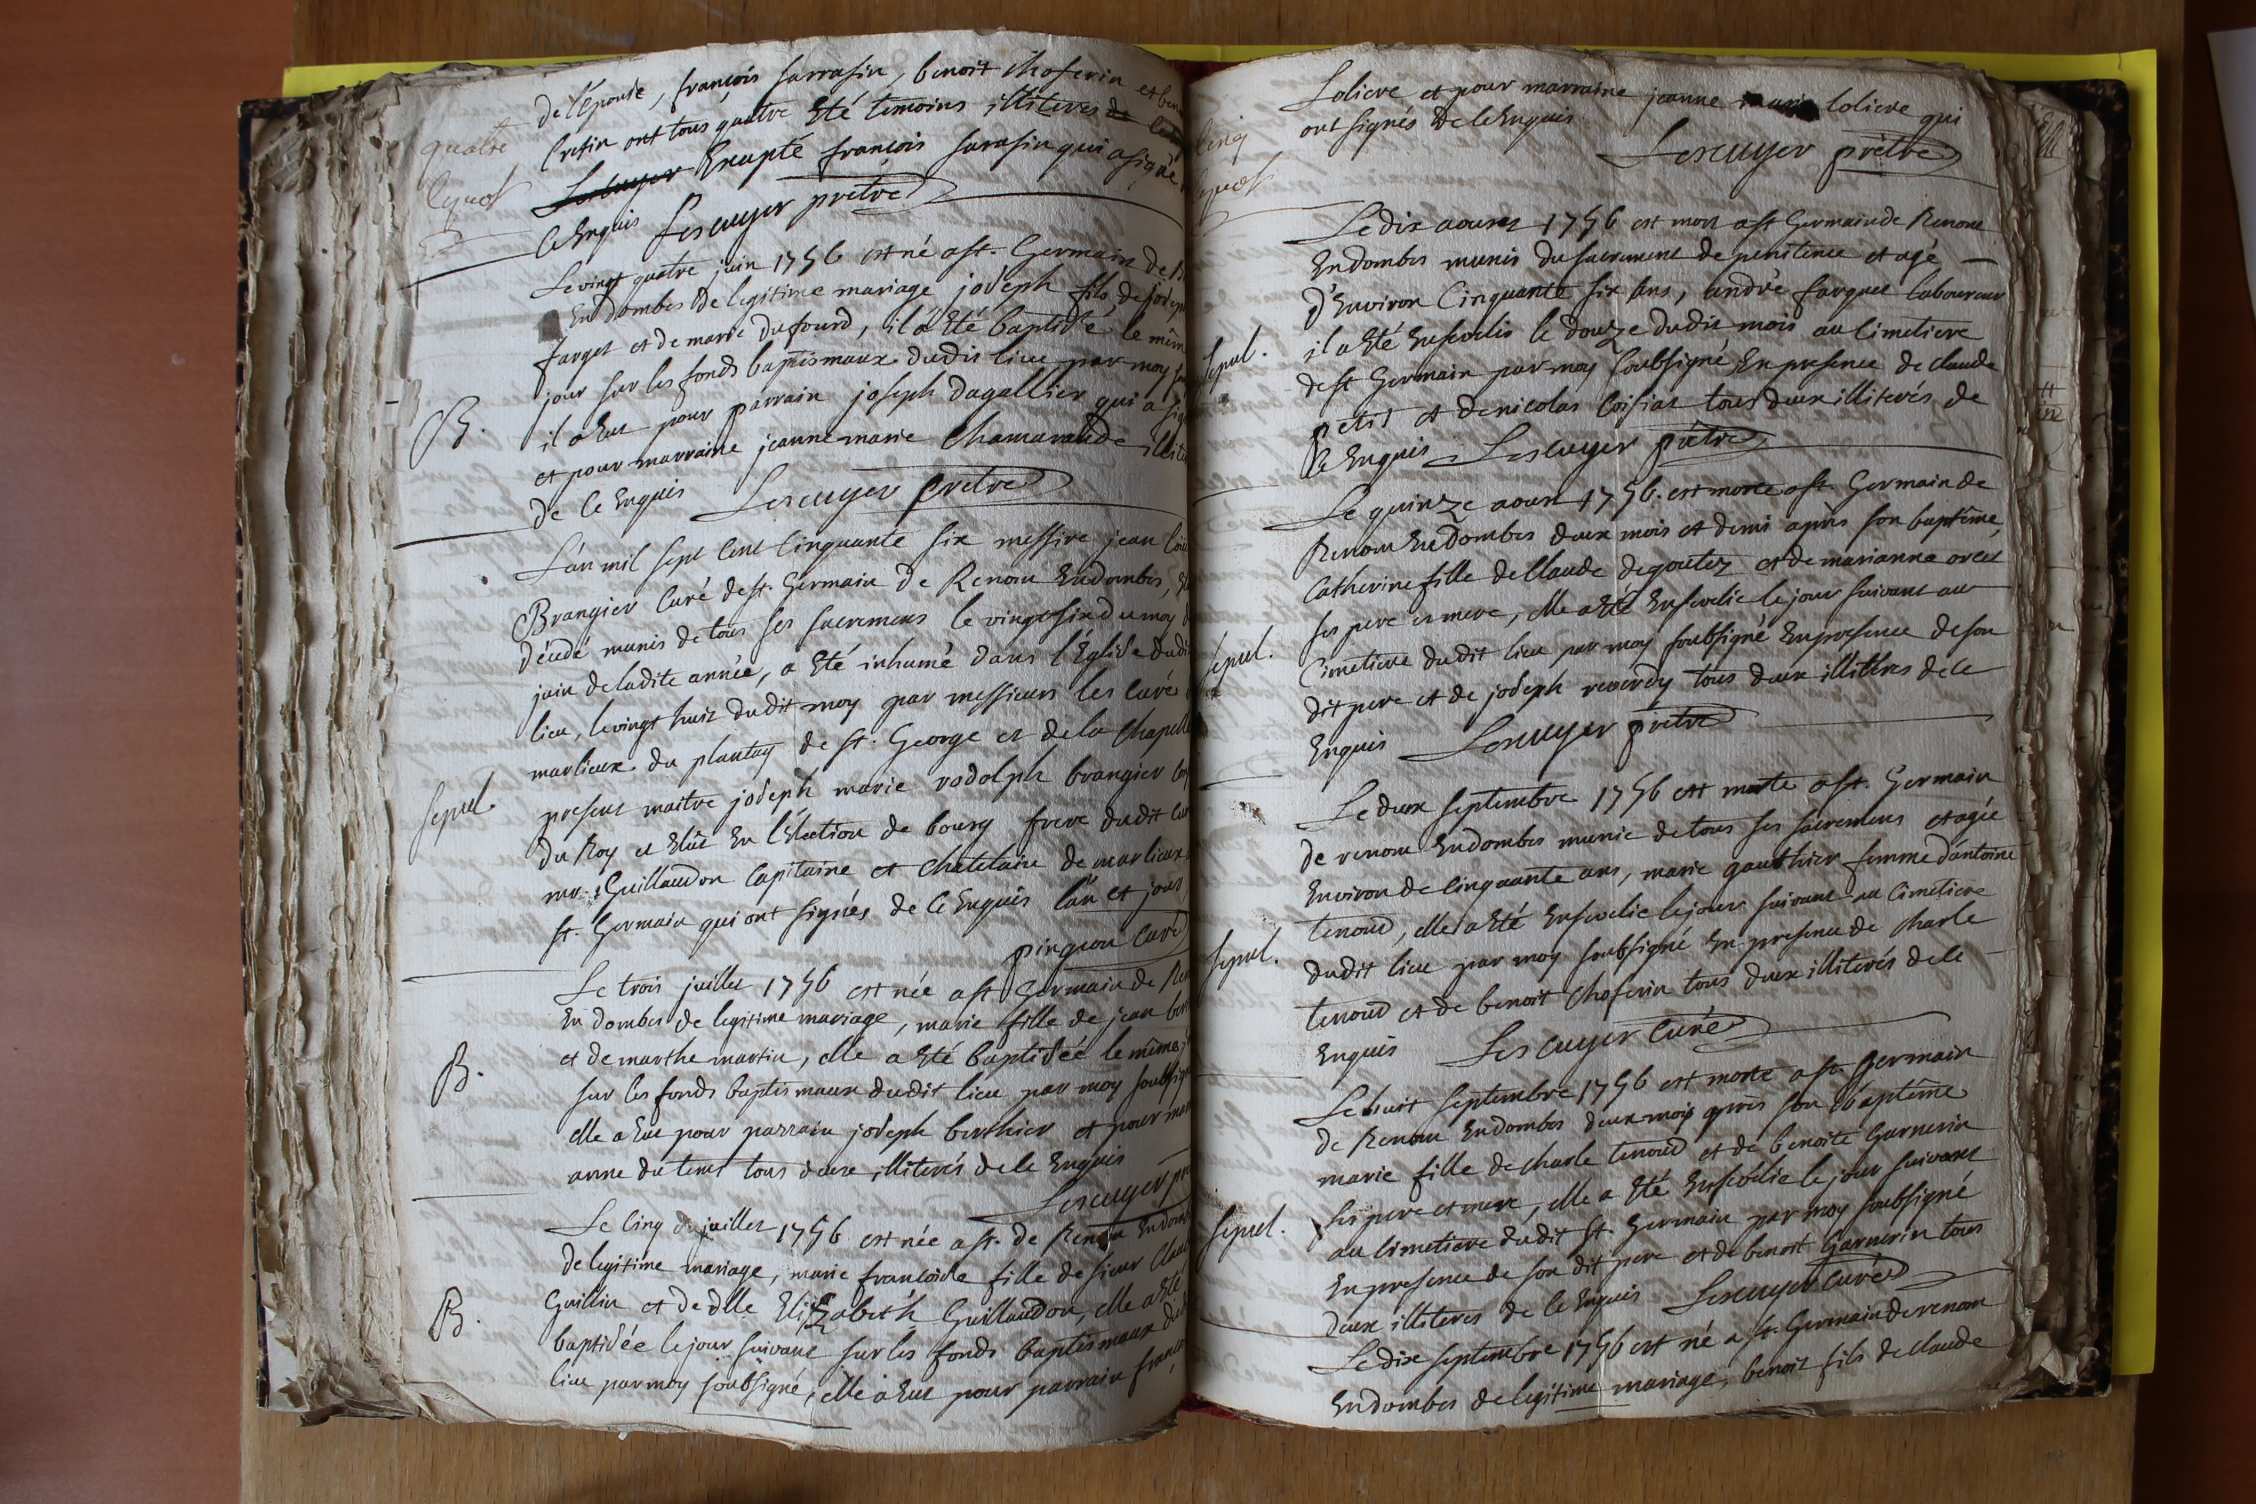 quatre
Cyot
de l'épouse, françois sarrasin, benoit Choferin et ben
Cretin ont tous quatre Eté temoins illiteres
Lescuyer Exepté françois sarasin qui a signé
Ce Enquis Lescuyer prêtre
Le vingt quatre juin 1756 est né a st. Germain de R
En dombes de legitime mariage joseph fils de joseph
farget et de marie dufourd, il a Eté baptisé le mêm
jour sur les fonds baptismaux dudit lieu par moy sou
B.
il a Eut pour parrain joseph Dagallier qui a sig
et pour marraine jeanne marie Chamarande illite
de Ce Enquis Lescuyer prêtre
L'an mil sept Cent Cinquante six messire jean loui
Brangier Curé de st. Germain de Renom En dombes,
décédé munis de tous ses sacremens le vingt six du moy d
juin de ladite année, a Eté inhumé dans l'Eglise dudi
lieu, le vingt huit dudit moy par messieurs les Curés
marlieux du plantay de st. George et de la Chapelle
sepul.
present maitre joseph marie rodolph brangier
du Roy et Elûe En l'Election de bourg frere dudit Cur
mr. Guillaudon Capitaine et Chatelain de marlieux
st. Germain qui ont signés de Ce Enquis l'an et jour
pingeon Curé
Le trois juillet 1756 est née a st Germain de Ren
En dombes de legitime mariage, marie fille de jean ber
et de marthe martin, elle a Eté baptisée le même
B.
sur les fonds baptismaux dudit lieu par moy soubsign
elle a Eut pour parrain joseph berthier et pour mar
anne dutems tous deux illiterés de Ce Enquis
Lescuyer pre
Le Cinq du juillet 1756 est née a st. de Renom En domb
de legitime mariage, marie francoise fille de sieur Clau
B.
Guillin et de dlle Elizabeth Guillaudon, elle a Eté
baptisée le jour suivant sur les fonds baptismaux dud
lieu par moy soubsigné, elle a Eut pour parrain franc
Cinq
Cyot
Loliere et pour marraine jeanne marie loliere qui
ont signés de Ce Enquis
Lescuyer prêtre
Le dix aoust 1756 est mort a st Germain de Renom
En dombes munis du sacrement de penitence et agé
d'Environ Cinquante six ans, andré farget laboureur
il a Eté Ensevelis le douze dudit mois au Cimetiere
sepul.
de st Germain par moy soubsigné En presence de claude
petit et de nicolas Coisiat tous deux illiterés de
Ce Enquis Lescuyer prêtre
Le quinze aoust 1756. est morte a st. Germain de
Renom En dombes deux mois et demi après son baptême,
Catherine fille de Claude degoutez et de marianne
ses pere et mere, elle a Eté Ensevelie le jour suivant au
sepul.
Cimetiere dudit lieu par moy soubsigné En presence de son
dit pere et de joseph reverdy tous deux illitéres de Ce
Enquis Lescuyer prêtre
Le deux septembre 1756 est morte a st. Germain
de renom En dombes munie de tous ses sacremens et agée
Environ de Cinquante ans, marie gauthier femme d'antoine
tenoud, elle a Eté Ensevelie le jour suivant au Cimetiere
sepul.
dudit lieu par moy soubsigné En presence de charle
tenoud et de benoit Choferin tous deux illiterés de Ce
Enquis Lescuyer Curé
Le huit septembre 1756 est morte a st. Germain
de Renom En dombes deux mois après son baptême
marie fille de charle tenoud et de benoite Garnerin
ses pere et mere, elle a Eté Ensevelie le jour suivant
sepul.
au Cimetiere dudit st. Germain par moy soubsigné
En presence de son dit pere et de benoit Garnerin tous
deux illiteres de Ce Enquis Lescuyer Curé
Le dix septembre 1756 est né a st. Germain de renom
En dombes de legitime mariage, benoit fils de claude